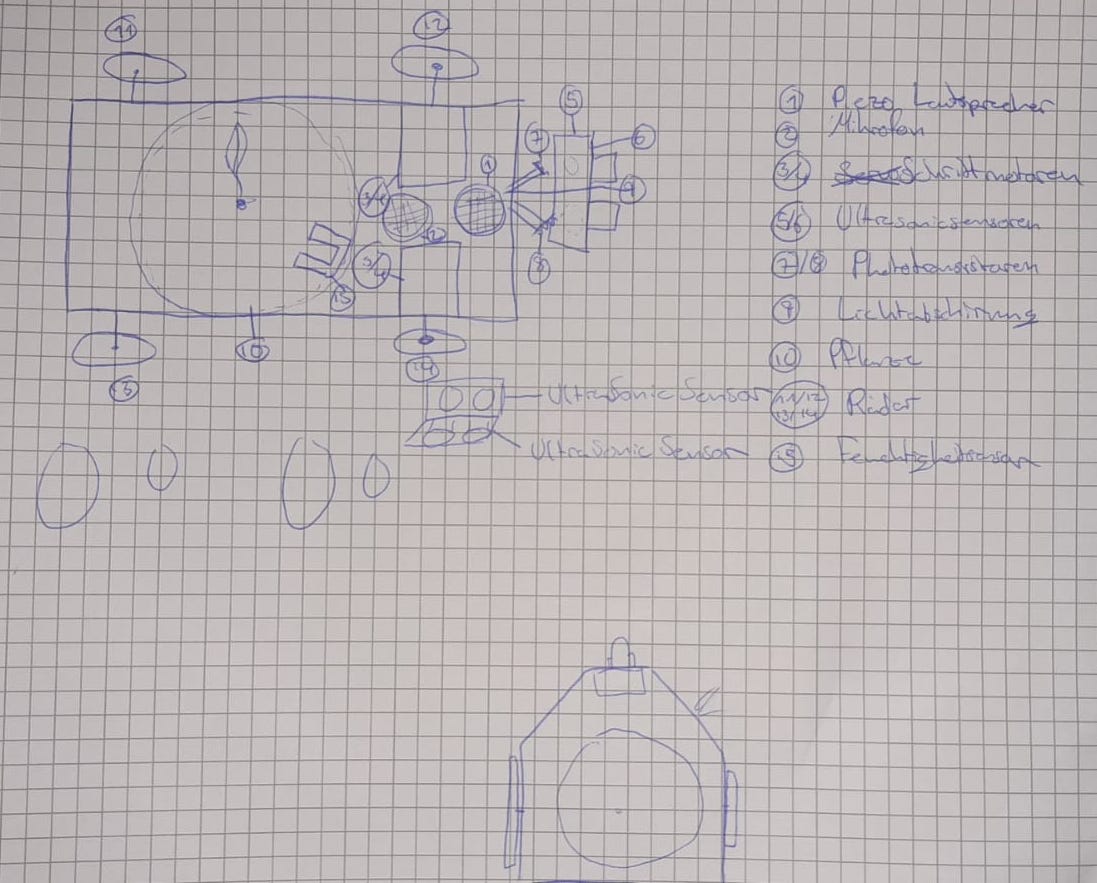 11
12
5
7
6
1
3/4
9
2
3/4
8
15
10
13
14
Ultrasonic Sensor
Ultrasonic Sensor
1 Piezo Lautsprecher
2 Mikrofon
3/4 Schrittmotoren
5/6 Ultrasonicsensoren
7/8 Phototransistoren
9 Lichtabschirmung
10 Pflanze
11/12
13/14 Räder
15 Feuchtigkeitssensor